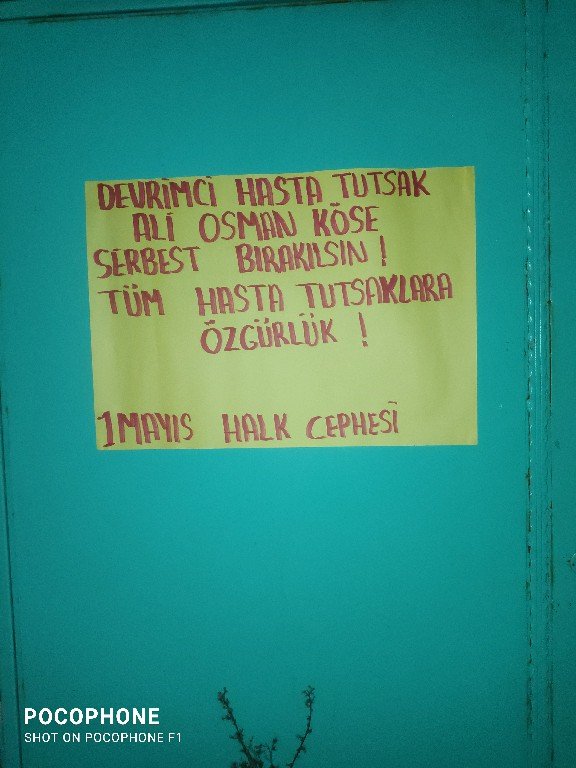 DEVRİMCİ HASTA TUTSAK
ALİ OSMAN KÖSE
SERBEST BIRAKILSIN !
TÜM HASTA TUTSAKLARA
ÖZGÜRLÜK !
1 MAYIS HALK CEPHESİ
POCOPHONE
SHOT ON POCOPHONE F1